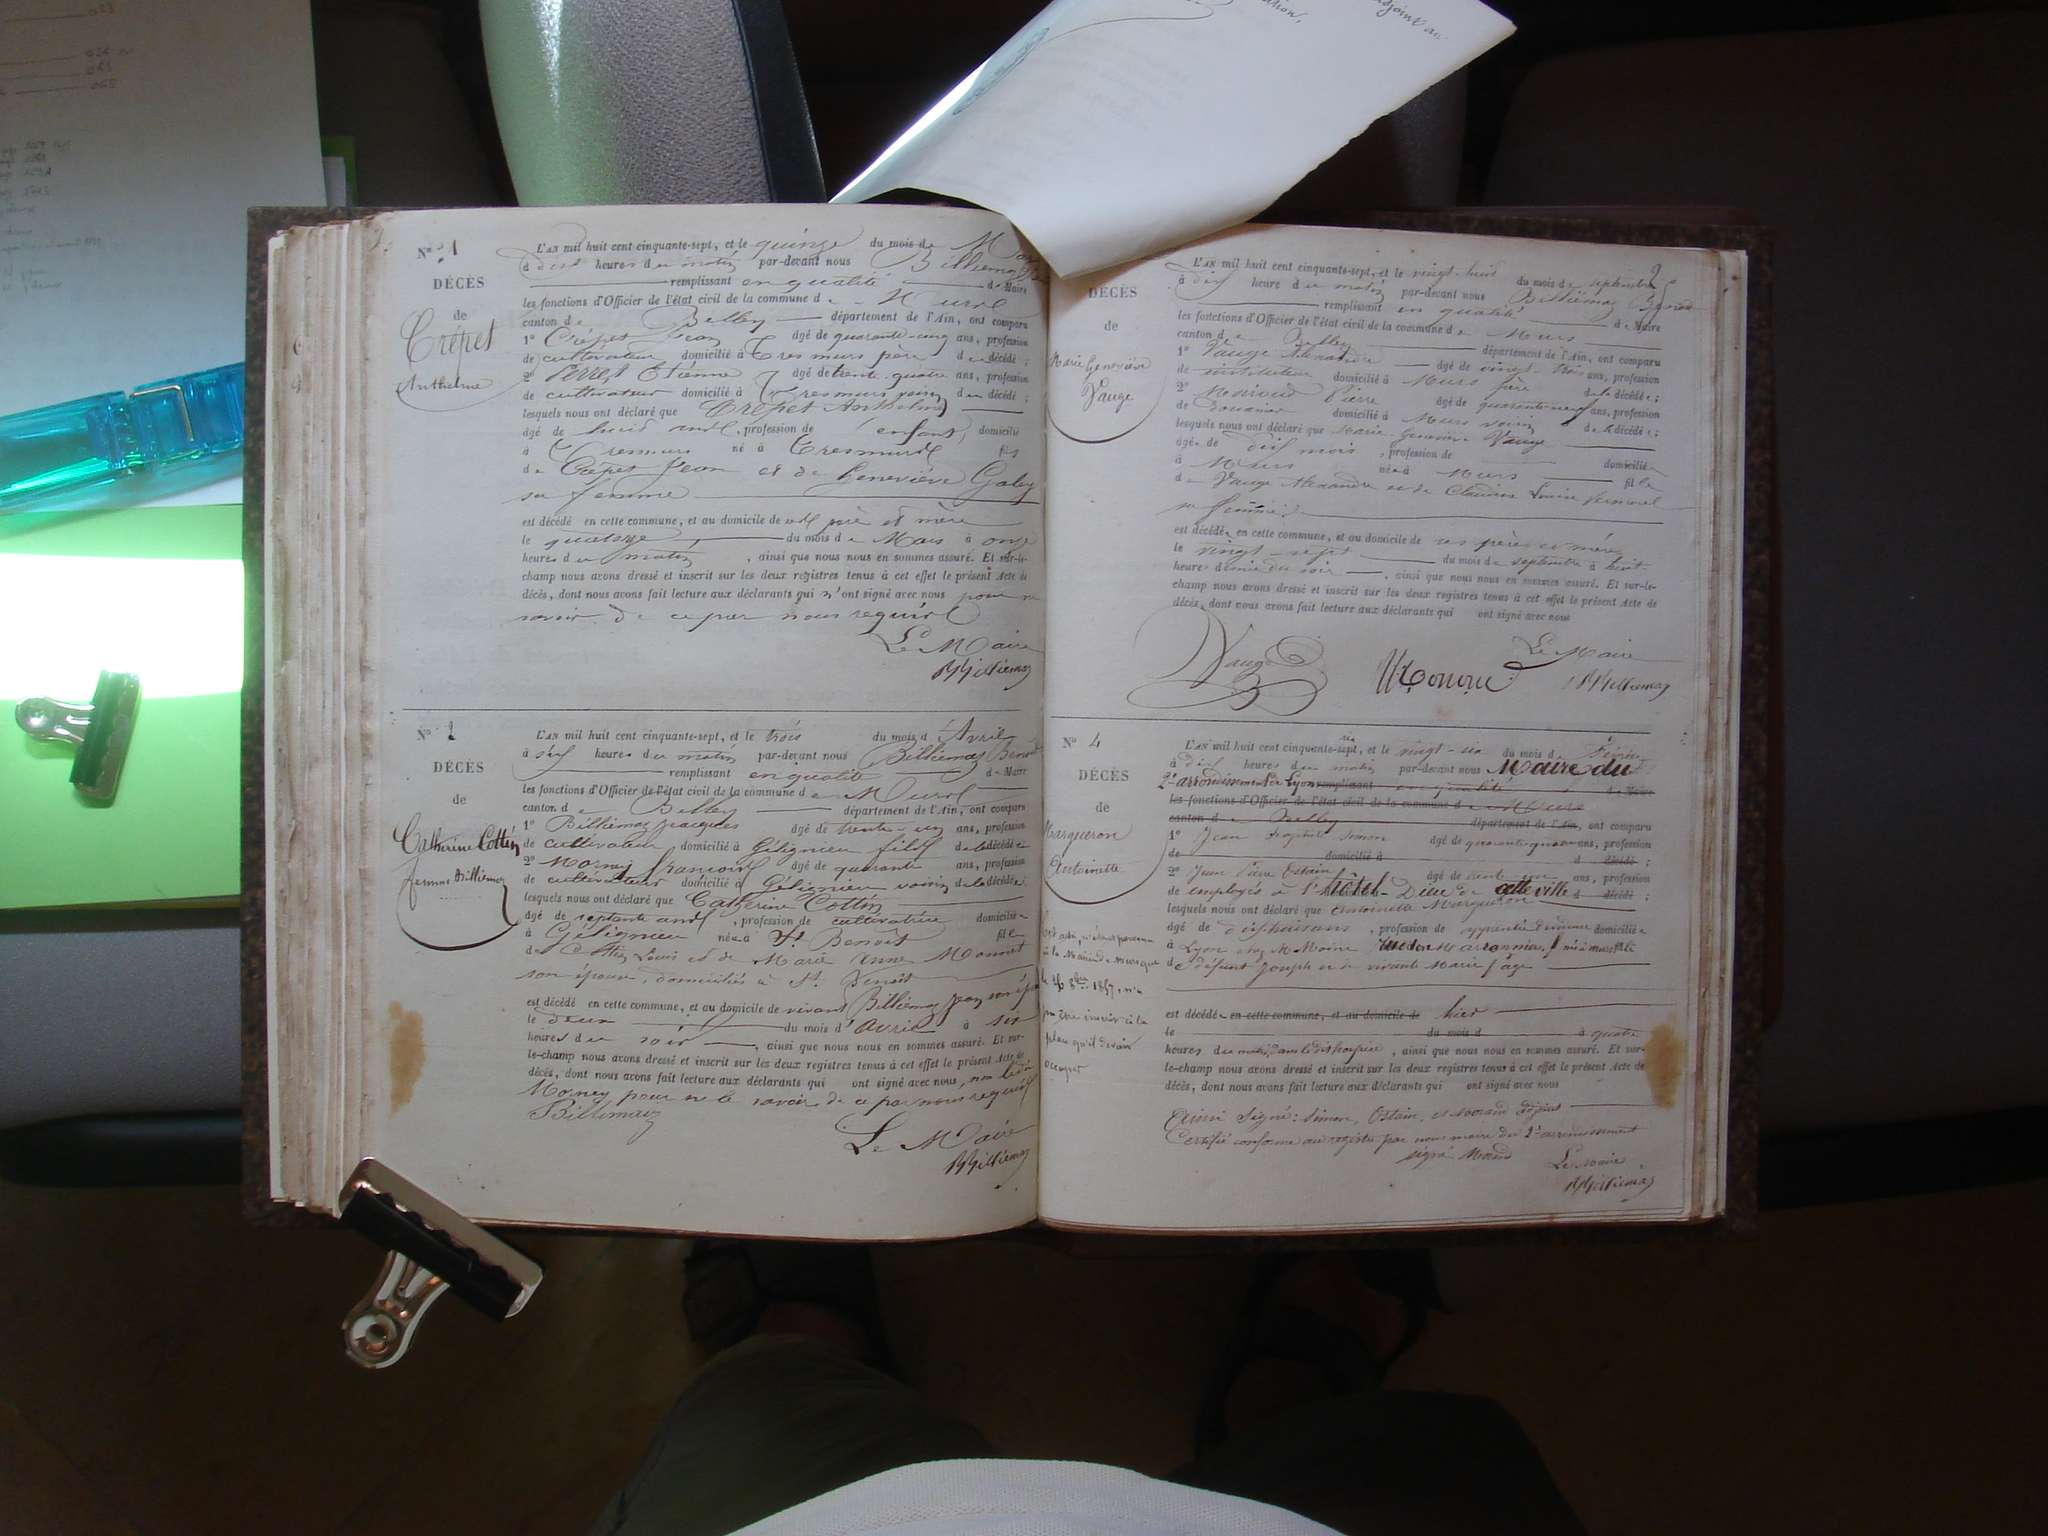 N° 1
DÉCÈS
de
Crépet
Anthelme
L'AN mil huit cent cinquante-sept, et le quinze du mois de
à dix heures du matin par-devant nous Billiémaz
remplissant en qualité de Maire
les fonctions d'Officier de l'état civil de la commune de Murs
canton de Belley département de l'Ain, ont comparu
1° Crépet Jean âgé de quarante-cinq ans, profession
de cultivateur domicilié à Tresmurs père du décédé ;
2° Perret Etienne âgé de trente-quatre ans, profession
de cultivateur domicilié à Tresmurs voisin du décédé ;
lesquels nous ont déclaré que Crépet Anthelme
âgé de huit ans, profession de enfant, domicilié
à Tresmurs né à Tresmurs fils
de Crépet Jean et de Geneviève Galey
sa femme
est décédé en cette commune, et au domicile de ses père et mère
le quatorze du mois de Mars à onze
heures du matin, ainsi que nous nous en sommes assuré. Et sur-le-
champ nous avons dressé et inscrit sur les deux registres tenus à cet effet le présent Acte de
décès, dont nous avons fait lecture aux déclarants qui n'ont signé avec nous pour ne
savoir de ce par nous requis
Le Maire
Billiemaz
N° 2
DÉCÈS
de
Catherine Cottin
femme Billiemaz
L'AN mil huit cent cinquante-sept, et le trois du mois d'Avril
à six heures du matin par-devant nous Billiémaz Benoit
remplissant en qualité de Maire
les fonctions d'Officier de l'état civil de la commune de Murs
canton de Belley département de l'Ain, ont comparu
1° Billiémaz Jacques âgé de trente-un ans, profession
de cultivateur domicilié à Gélignieu fils de la décédée
2° Morney François âgé de quarante ans, profession
de cultivateur domicilié à Gélignieu voisin de la décédée
lesquels nous ont déclaré que Catherine Cottin
âgé de septente ans, profession de cultivatrice domiciliée
à Gélignieu née à St Benoît fille
de Cottin Louis et de Marie Anne Monnet
son épouse, domiciliés à St. Benoît
est décédé en cette commune, et au domicile de vivant Billiémaz Jean son
le deux du mois d'avril à six
heures du soir, ainsi que nous nous en sommes assuré. Et sur-
le-champ nous avons dressé et inscrit sur les deux registres tenus à cet effet le présent Acte de
décès, dont nous avons fait lecture aux déclarants qui ont signé avec nous, non
Morney pour ne le savoir de ce par nous requis
Billiemaz
Le Maire
Billiemaz
2
DÉCÈS
de
Marie Geneviève
Vauge
L'AN mil huit cent cinquante-sept, et le vingt-huit du mois de septembre
à dix heure du matin par-devant nous Billiémaz Benoit
remplissant en qualité de Maire
les fonctions d'Officier de l'état civil de la commune de Murs
canton de Belley département de l'Ain, ont comparu
1° Vauge Alexandre âgé de vingt-trois ans, profession
de instituteur domicilié à Murs père de la décédée ;
2° Pierre âgé de quarante-neuf ans, profession
de douanier domicilié à Murs voisin de la décédée ;
lesquels nous ont déclaré que Marie-Geneviève Vauge
âgée de dix mois, profession de domiciliée
à Murs née à Murs fille
de Vauge Alexandre et de Claudine Louise
sa femme
est décédée, en cette commune, et au domicile de ses père et mère
le vingt-sept du mois de septembre à huit
heures demie du soir, ainsi que nous nous en sommes assuré. Et sur-le-
champ nous avons dressé et inscrit sur les deux registres tenus à cet effet le présent Acte de
décès, dont nous avons fait lecture aux déclarants qui ont signé avec nous
Le Maire
Vauge
Billiemaz
N° 4
DÉCÈS
de
Margueron
Antoinette
L'AN mil huit cent cinquante-sept, et le vingt-six du mois de
à dix heures du matin par-devant nous Maire du
2e arrondissement de Lyon remplissant en qualité de Maire
les fonctions d'Officier de l'état civil de la commune de Murs
canton de Belley département de l'Ain, ont comparu
1° Jean Simon âgé de ans, profession
de domicilié à d décédé ;
2° Jean Pierre Ostain âgé de trente-un ans, profession
de employés à l'hôtel-Dieu de cette ville d décédé ;
lesquels nous ont déclaré que Antoinette Margueron
âgé de dix huit ans, profession de apprentie domiciliée
à Lyon chez Mr Moine rue des Marronniers née à Murs fille
de défunt Joseph et de vivante Marie
est décédée en cette commune, et au domicile de hier
le du mois d à quatre
heures du matin, dans le dit hospice, ainsi que nous nous en sommes assuré. Et sur-
le-champ nous avons dressé et inscrit sur les deux registres tenus à cet effet le présent Acte de
décès, dont nous avons fait lecture aux déclarants qui ont signé avec nous
Ainsi Signé : Simon, Ostain, et Morand adjoint
Certifié conforme au registre par nous maire du 2e arrondissement
signé Morand
Le Maire
Billiemaz
à la Mairie de Murs que
le 26 8bre 1857, n'a
pu être inscrit à la
place qu'il devait
occuper